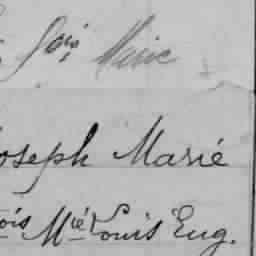 Fois Marie
oseph Marie
ois Mie Louis Eug.